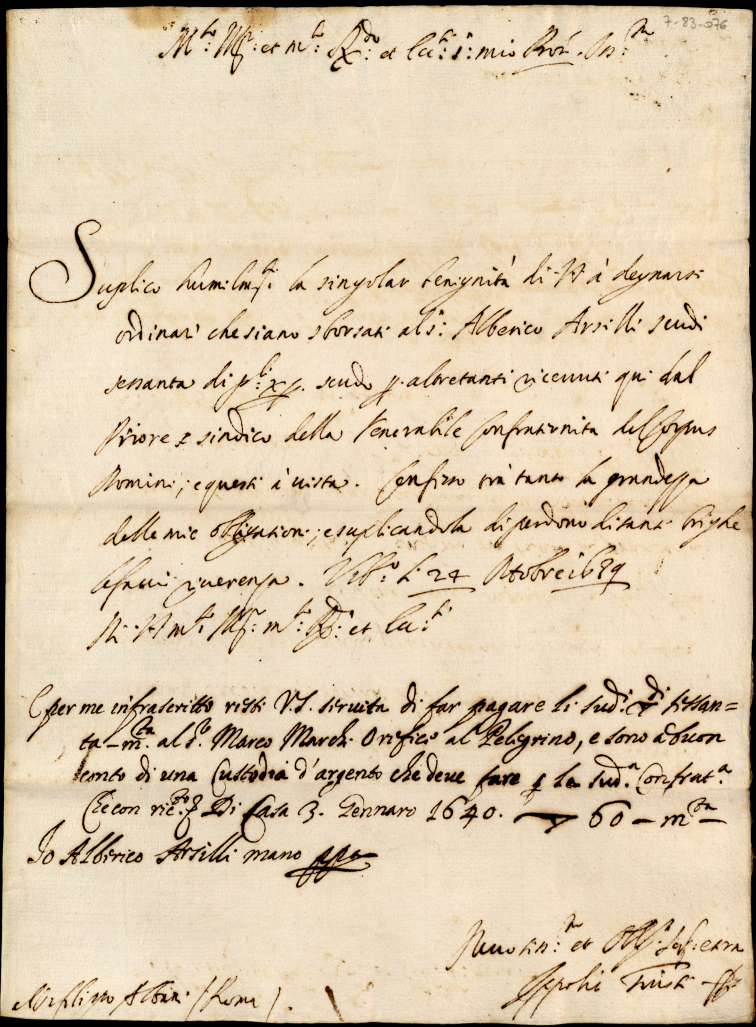 7-83-076
M.to Ill.re et m.to R.do et Ecc.te S.r mio Pron. Oss.mo
Suplico humilmte la singolar benignità di VS à degnarsi
ordinari che siano sborsati al S.r Alberico Arsilli scudi
sessanta di scudo p altretanti riceuuti qui dal
Priore e sindico della Venerabile Confraternita del Corpus
Domini; e questi à uista. Confesso trà tanto la grandezza
delle mie obligationi; e suplicandola di perdono di tante brighe
le facci riuerenza. li 24 Ottobre 1639
Di VS m.to Ill.re m.to R.da et Ecc.te
E per me infrascritto resti V.S. seruita di far pagare li sud.i di sessan=
ta – m.ta al S.r Marco Marchi Orefice al Pelegrino, e sono à buon
conto di una Custodia d'argento che deue fare p la sud.a Confrat.a
Che con ric.to Di Casa 3. Gennaro 1640. 60 – m.ta –
Io Alberico Arsilli mano ppa
Deuotiss.mo et
Alban: (Roma)